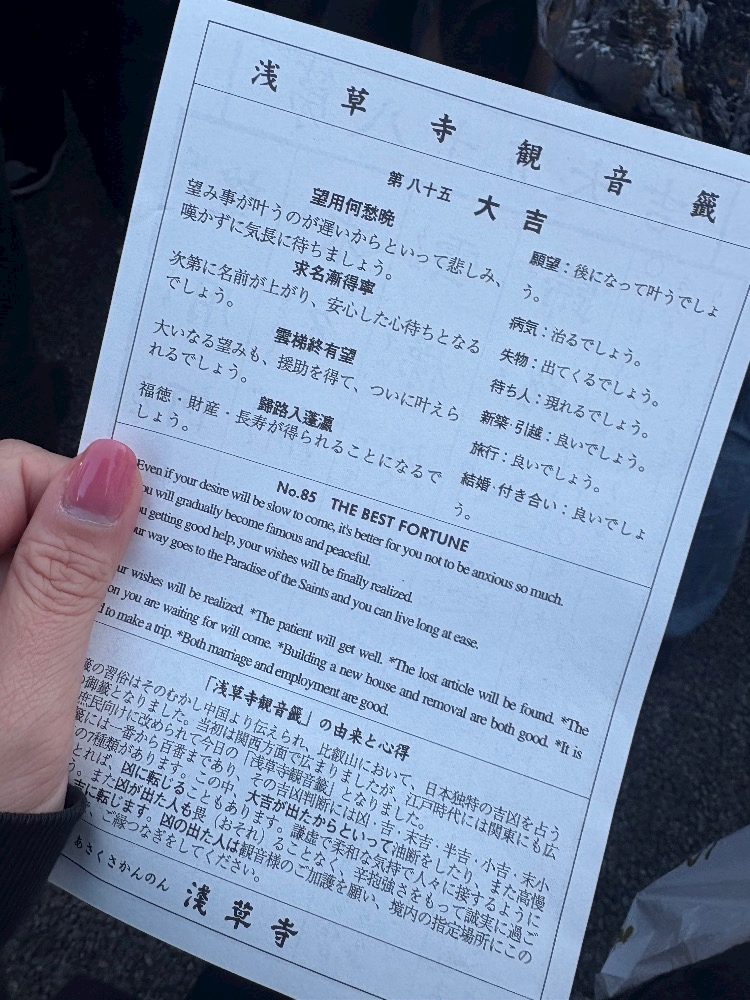 浅草寺観音籤
第八十五 大吉
望用何愁晩
望み事が叶うのが遅いからといって悲しみ、
嘆かずに気長に待ちましょう。
求名漸得寧
次第に名前が上がり、安心した心待ちとなる
でしょう。
雲梯終有望
大いなる望みも、援助を得て、ついに叶えら
れるでしょう。
歸路入蓬瀛
福徳・財産・長寿が得られることになるで
しょう。
願望：後になって叶うでしょ
う。
病気：治るでしょう。
失物：出てくるでしょう。
待ち人：現れるでしょう。
新築・引越：良いでしょう。
旅行：良いでしょう。
結婚・付き合い：良いでしょ
う。
No.85 THE BEST FORTUNE
Even if your desire will be slow to come, it's better for you not to be anxious so much.
ou will gradually become famous and peaceful.
u getting good help, your wishes will be finally realized.
ur way goes to the Paradise of the Saints and you can live long at ease.
ur wishes will be realized. *The patient will get well. *The lost article will be found. *The
on you are waiting for will come. *Building a new house and removal are both good. *It is
to make a trip. *Both marriage and employment are good.
「浅草寺観音籤」の由来と心得
籤の習俗はそのむかし中国より伝えられ、比叡山において、日本独特の吉凶を占う
御籤となりました。当初は関西方面で広まりましたが、江戸時代には関東にも広
庶民向けに改められて今日の「浅草寺観音籤」となりました。
籤には一番から百番まであり、その吉凶判断には凶・吉・末吉・半吉・小吉・末小
の7種類があります。この中、大吉が出たからといって油断をしたり、また高慢
とれば、凶に転じることもあります。謙虚で柔和な気持で人々に接するように
う。また凶が出た人も畏（おそ）れることなく、辛抱強さをもって誠実に過ご
吉に転じます。凶の出た人は観音様のご加護を願い、境内の指定場所にこの
、ご縁つなぎをしてください。
あさくさかんのん 浅草寺